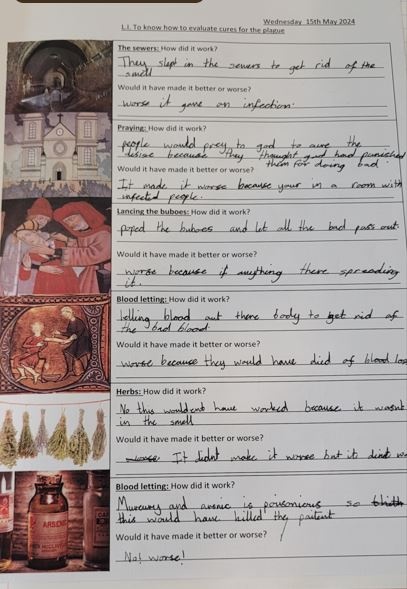 Wednesday 15th May 2024
L.I. To know how to evaluate cures for the plague
The sewers: How did it work?
They slept in the sewers to get rid of the
smell
Would it have made it better or worse?
worse it gave an infection.
Praying: How did it work?
people would prey to god to cure the
because they thought god had punished
them for doing bad.
Would it have made it better or worse?
It made it worse because your in a room with
infected people.
Lancing the buboes: How did it work?
poped the buboes and let all the bad puss out.
Would it have made it better or worse?
worse because if anything there spreading
it.
Blood letting: How did it work?
blood out there body to get rid of
the bad blood
Would it have made it better or worse?
worse because they would have died of blood
Herbs: How did it work?
No this wouldent have worked because it wasnt
in the smell
Would it have made it better or worse?
It didnt make it worse but it
Blood letting: How did it work?
and is so
this would have killed the patient
Would it have made it better or worse?
worse!
ARSENIC